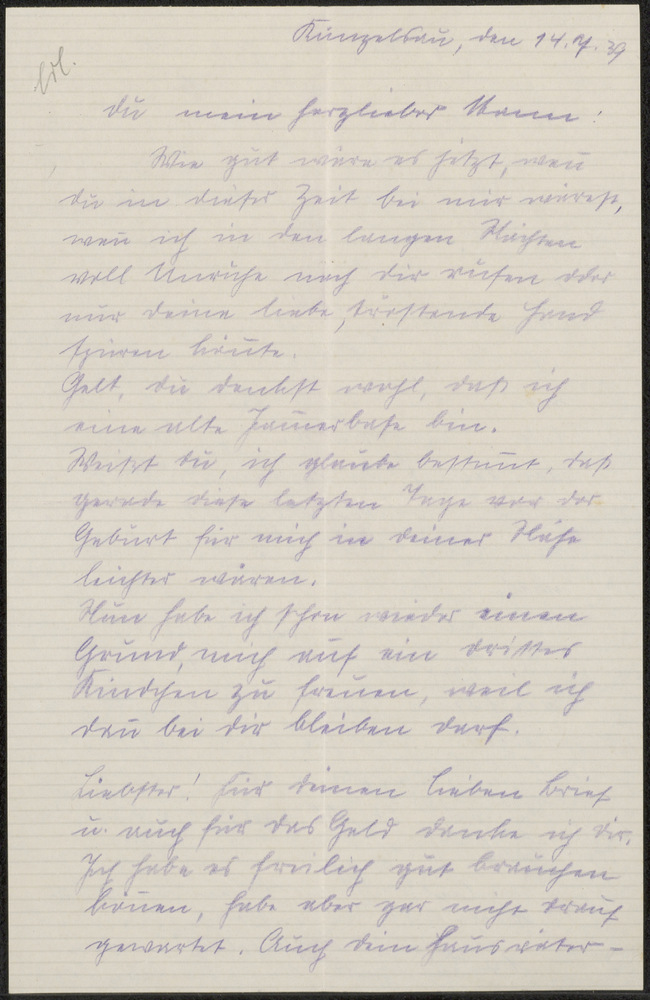 Künzelsau, den 14.9.39
erl.
Du mein herzlieber Mann!
Wie gut wäre es jetzt, wenn
du in dieser Zeit bei mir wärest,
wenn ich in den langen Nächten
voll Unruhe nach dir rufen oder
nur deine liebe, tröstende Hand
spüren könnte.
Gelt, du denkst wohl, daß ich
eine alte Jammerbase bin.
Weißt du, ich glaube bestimmt, daß
gerade diese letzten Tage vor der
Geburt für mich in deiner Nähe
leichter wären.
Nun habe ich schon wieder einen
Grund, mich auf ein drittes
Kindchen zu freuen, weil ich
dann bei dir bleiben darf.
Liebster! Für deinen lieben Brief
u. auch für das Geld danke ich dir.
Ich habe es freilich gut brauchen
können, habe aber gar nicht drauf
gewartet. Auch dein Hausvater-